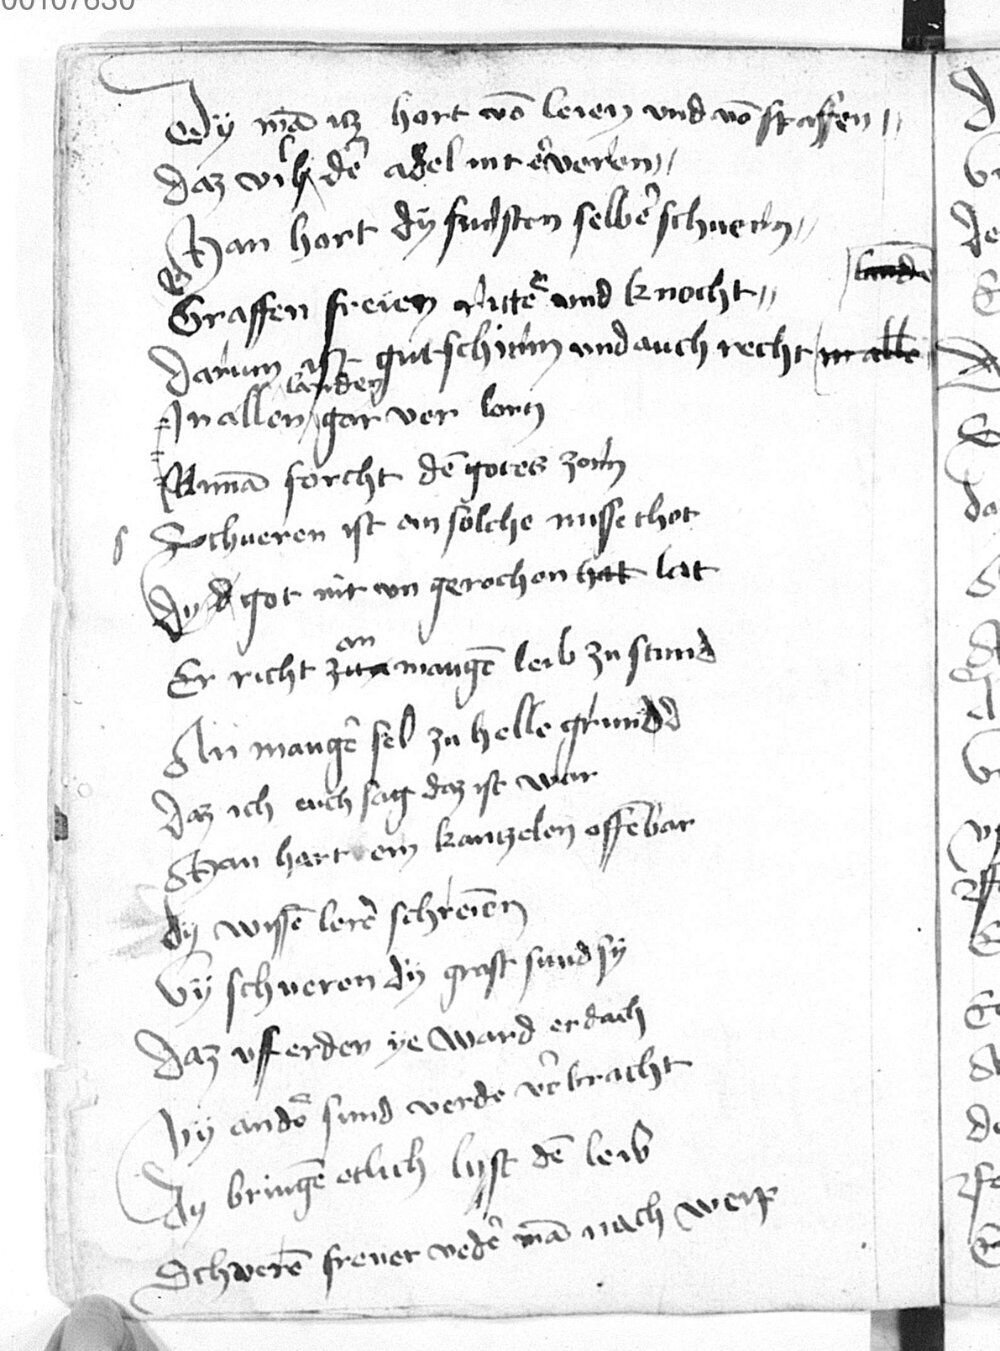 00107630
Wy mā itz hort vō leien vnd vō pfaffen
Daz vil dē adel nit ē veren
Man hort dy fursten selbē schweren
Graffen freien rittē vnd knecht
lande
Darum ist gut schirm vnd auch recht in alle
landen
In allen gar ver lorn
Niman forcht dē gotes zorn
Schueren ist ein solche misse thot
Dy got nit vn gerochen hat lat
an
Er richt zu mangē leib zu stund
An mangē sel zu helle grund
Daz ich euch sag daz ist war
Man hort ein kantzelen offēbar
Dy wissē lerē schreien
Wy schueren dy grost sund sy
Daz vff erden ye ward erdach
Wy andē sund werde vēbracht
Dy bringē etlich lust dē leib
Schwerē frewet wedē mā nach weip